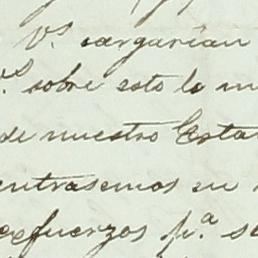 V.s cargarían
V.s sobre esto lo m
de nuestro Esta
entrasemos en
esfuerzos p.a s